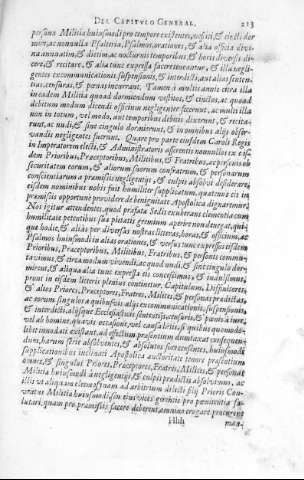 DEL CAPITVLO GENERAL. 213
persona Militia huiusmodi pro tempore existentes, vestiti, & cincti dor
mire, ac nonnulla Psalteria, Psalmos, orationes, & alia officia diui-
na annuatim, & dietim, ac nocturnis temporibus, & horis diuersis di-
cere, & recitare, & alia tunc expressa facere
gentes excommunicationis suspensionis, & interdicti, aut alias senten-
tias, censuras, & pœnas incurrant. Tamen à multis annis citra illa
in eadem Militia quoad dormiendum vestitos, & cinctos, ac quoad
debitum modum dicendi officium negligenter fecerunt, ac multi illa
non in totum, vel modo, aut temporibus debitis dixerunt, & recita-
runt, ac nudi, & sine cingulo dormierunt, & in omnibus aliis obser-
uandis negligentes fuerunt. Quare pro parte eiusdem Caroli Regis
in Imperatorem electi, & Administratoris asserentis nonnullos ex ei
Prioribus, Præceptoribus, Militibus, & Fratribus, ac
securitatem eorum, & aliorum suorum confratrum, & personarum
à præmissis negligentijs, & culpis absolui
eisdem nominibus nobis fuit humiliter supplicatum, quatenus eis in
præmissis opportune prouidere de benignitate Apostolica dignaremur.
Nos igitur attendentes, quod præfata Sedes exuberans clementia cum
humilitate petentibus sua pietatis gremium aperire
que hodie, & alias per diuersas nostras litteras, horas, & officium, ac
Psalmos huiusmodi in alias orationes, & versus tunc expressos eisdem
Prioribus, Præceptoribus, Militibus, Fratribus, & personis commu-
tauimus, & circa modum viuendi, ac quod nudi, & sine cingulo dor-
mirent, & aliqua alia tunc expressa eis concessimus, & indulsimus,
prout in eisdem litteris plenius continetur, Capitulum, Diffinitores,
& alios Priores, Præceptores, Fratres, Milites, & personas prædictas,
ac eorum singulos a quibusuis alijs excommunicationis, suspensionis,
& interdicti, alijsque Ecclesiasticis sententijs, censuris, & pœnis à iure,
vel ab homine, quauis occasione, vel causa latis, si quibus quomodo-
libet innodati existant, ad effectum præsentium dumtaxat consequen-
dum, harum serie absoluentes, & absolutos fore censentes, huiusmodi
supplicationibus inclinati Apostolica auctoritate tenore præsentium
omnes, & singulos Priores, Præceptores, Fratres, Milites, & personas
Militia huiusmodi à negligentijs, & culpis prædictis absoluimus, ac
illis vt aliquam eleemosynam ad arbitrium dilecti filij Prioris Con
uentus Militia huiusmodi seu eius vices gerentis pro pœnitentia sa-
lutari, quam pro præmissis facere deberent, amniuo erogare
man-